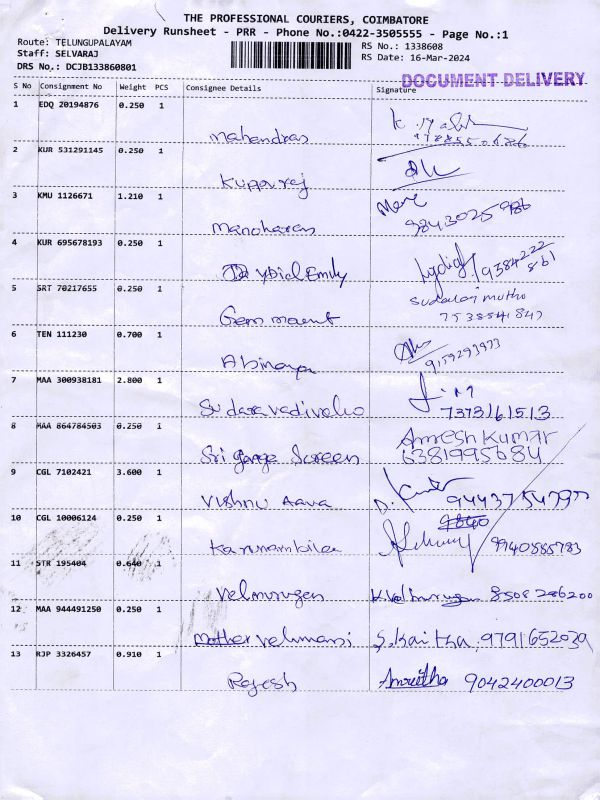 THE PROFESSIONAL COURIERS, COIMBATORE
Delivery Runsheet - PRR - Phone No.:0422-3505555 - Page No.:1
Route: TELUNGUPALAYAM
Staff: SELVARAJ
DRS No.: DCJB133860801
RS No.: 1338608
RS Date: 16-Mar-2024
DOCUMENT DELIVERY
S No Consignment No Weight PCS Consignee Details Signature
1 EDQ 20194876 0.250 1
Mahendran
2 KUR 531291145 0.250 1
Kuppuraj
3 KMU 1126671 1.210 1
Manoharan 9843025986
4 KUR 695678193 0.250 1
Emily 9384222861
5 SRT 70217655 0.250 1
Sudalai muthu
7538541847
6 TEN 111230 0.700 1
Abinaya 9159293973
7 MAA 300938181 2.800 1
Sudaravadivelu 7373161513
8 MAA 864784503 0.250 1
Amresh Kumar
Sri Screen 6381995684
9 CGL 7102421 3.600 1
Vishnu
10 CGL 10006124 0.250 1
9940885783
11 STR 195404 0.640 1
Velmurugan K.Velmurugan
12 MAA 944491250 0.250 1
Mother 9791652039
13 RJP 3326457 0.910 1
Rajesh Amrutha 9042400013